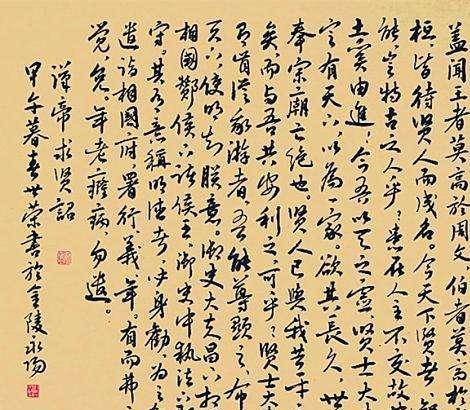 盖闻王者莫高於周文伯者莫高於
桓,皆待贤人而成名。今天下贤者
能,岂特古之人乎?患在人主不交故
士奚由進,今吾以天之靈贤士大
定有天下,以為一家。欲其長久,世
奉宗廟亡绝也。贤人已與我共
矣,而与吾共安利之可乎?贤士大
有肯從我游者,吾能尊顯之,布
天下使明知朕意。御史大夫昌下相
相國酂侯下诸侯王,御史中執法下
守。其有意稱明德者,必身勸,為之
遣詣相國府署行義年。有而弗
觉,免。年老癃病勿遣。
漢帝求贤詔
甲午暮春世荣書於金陵永陽